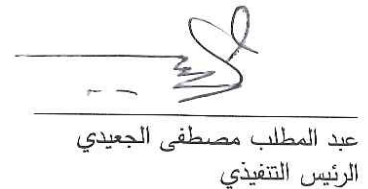 عبد المطلب مصطفى الجعيدي
الرئيس التنفيذي